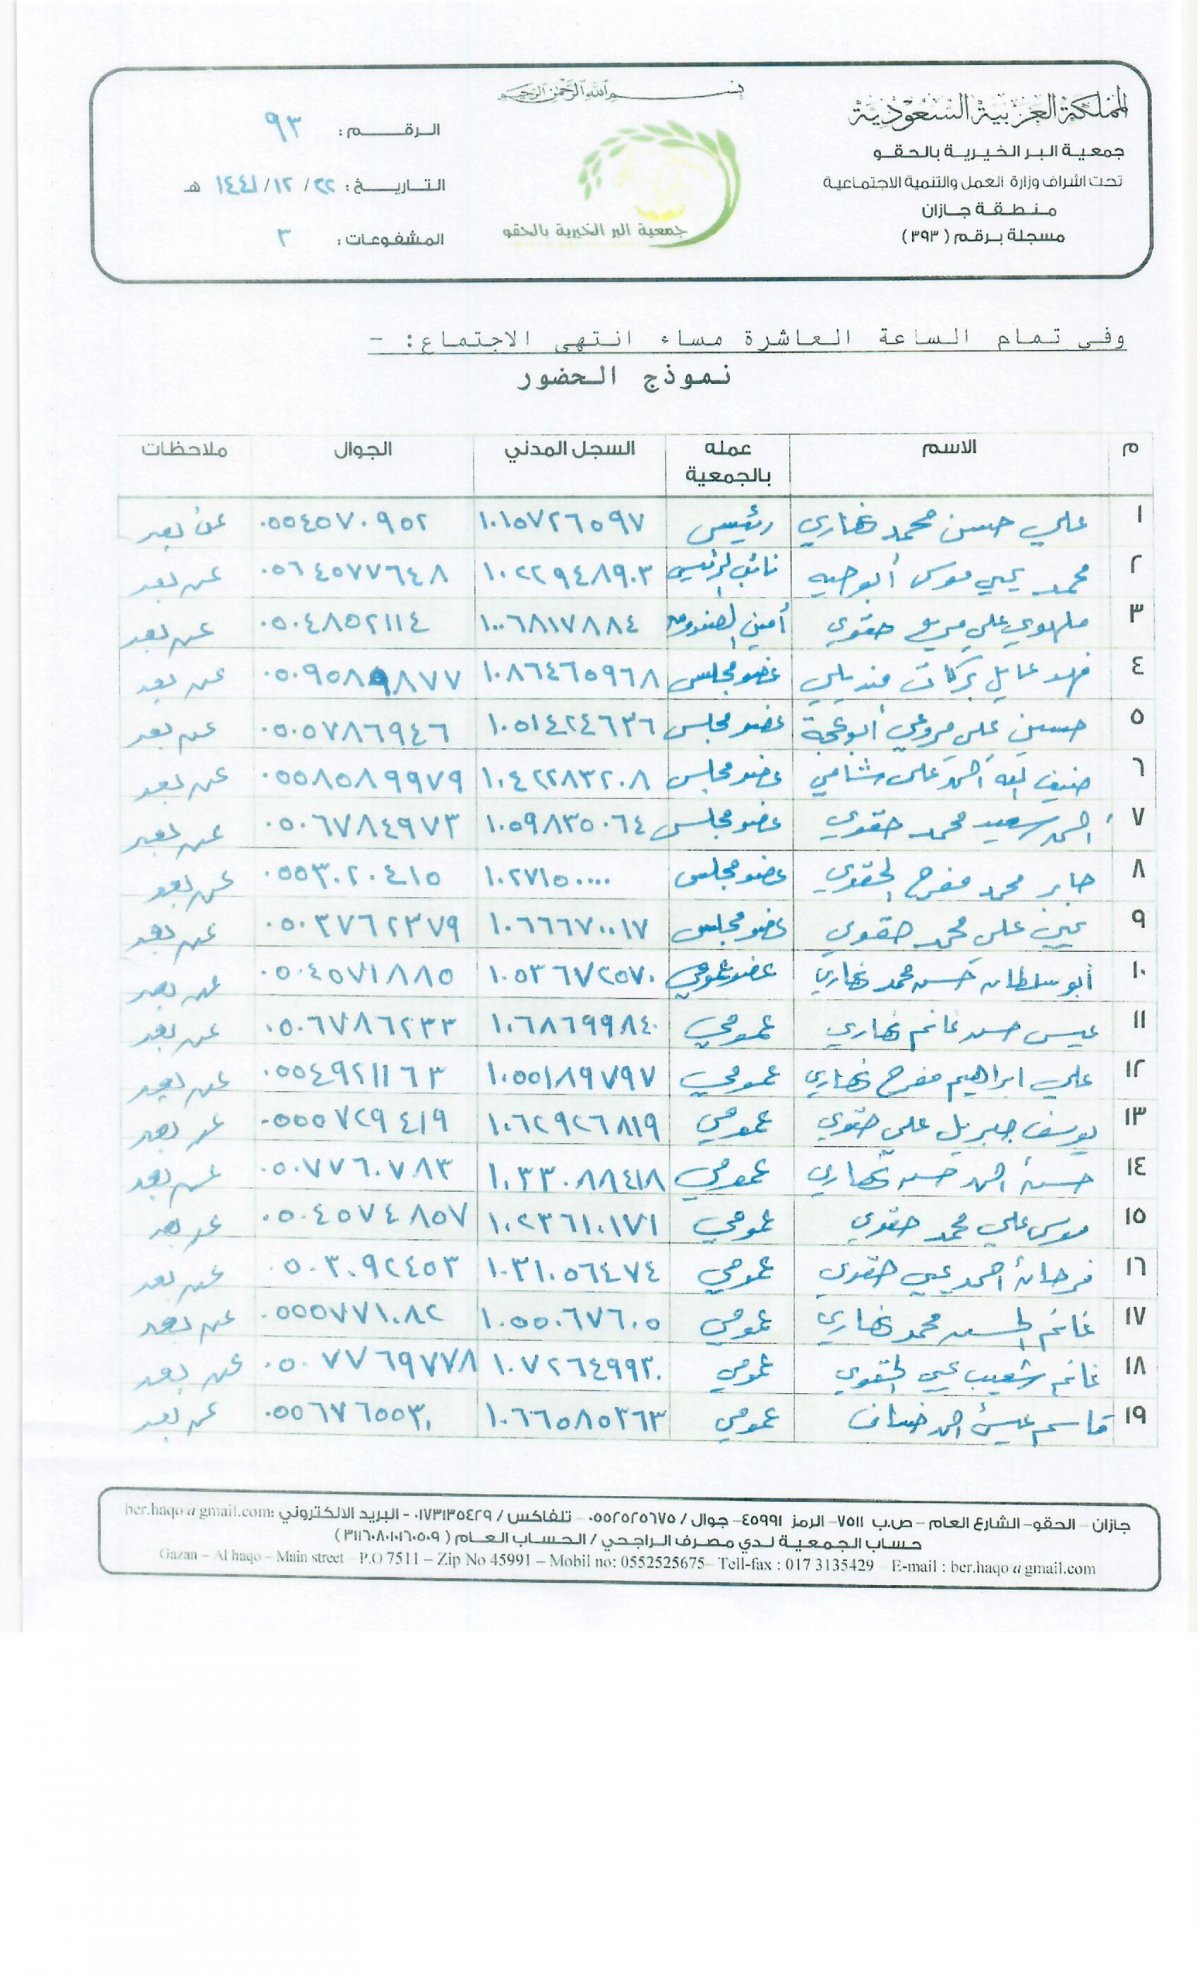 بسم الله الرحمن الرحيم
المملكة العربية السعودية
جمعية البر الخيرية بالحقو
تحت اشراف وزارة العمل والتنمية الاجتماعية
منطقة جازان
مسجلة برقم (٣٩٣)
جمعية البر الخيرية بالحقو
الرقم : ٩٣
التاريخ : ٢٢ / ١٢ / ١٤٤١ هـ
المشفوعات : ٢
وفي تمام الساعة العاشرة مساء انتهى الاجتماع: -
نموذج الحضور
م الاسم عمله بالجمعية السجل المدني الجوال ملاحظات
١ علي حسن محمد نهاري رئيس ١٠١٥٧٢٦٥٩٧ ٠٥٥٤٥٧٠٩٥٢ عن بعد
٢ محمد يحيي موسى أبوحيه نائب الرئيس ١٠٢٢٩٤٨٩٠٣ ٠٥٦٤٥٧٧٦٤٨ عن بعد
٣ ملهوي علي حقوي أمين الصندوق ١٠٠٦٨١٧٨٨٤ ٠٥٠٤٨٥٢١١٤ عن بعد
٤ فهد عايل بركات منديلي عضو مجلس ١٠٨٦٤٦٥٩٦٨ ٠٥٠٩٥٨٩٨٧٧ عن بعد
٥ حسين علي مروعي عضو مجلس ١٠٥١٤٢٤٦٣٦ ٠٥٠٥٧٨٦٩٤٦ عن بعد
٦ ضيف الله احمد علي شامي عضو مجلس ١٠٤٢٢٨٣٢٠٨ ٠٥٥٨٥٨٩٩٧٩ عن بعد
٧ احمد سعيد محمد حقوي عضو مجلس ١٠٥٩٨٣٥٠٦٤ ٠٥٠٦٧٨٤٩٧٣ عن بعد
٨ جابر محمد مفرح الحقوي عضو مجلس ١٠٢٧١٥٠٠٠٠ ٠٥٥٣٠٢٠٤١٥ عن بعد
٩ يحيى علي محمد حقوي عضو مجلس ١٠٦٦٦٧٠٠١٧ ٠٥٠٣٧٦٢٣٧٩ عن بعد
١٠ أبو سلطان حسن محمد نهاري عضو عمومي ١٠٥٣٦٧٢٥٧٠ ٠٥٠٤٥٧١٨٨٥ عن بعد
١١ عيسى حسن غانم نهاري عمومي ١٠٦٨٦٩٩٨٤٠ ٠٥٠٦٧٨٦٢٣٣ عن بعد
١٢ علي ابراهيم مفرح نهاري عمومي ١٠٥٥١٨٩٧٩٧ ٠٥٥٤٩٢١١٦٣ عن بعد
١٣ يوسف جبريل علي حقوي عمومي ١٠٦٢٩٢٦٨١٩ ٠٥٥٥٧٢٩٤١٩ عن بعد
١٤ حسن احمد حسن نهاري عمومي ١٠٣٣٠٨٨٤١٨ ٠٥٠٧٧٦٠٧٨٣ عن بعد
١٥ موسى علي محمد حقوي عمومي ١٠٢٣٦١٠١٧١ ٠٥٠٤٥٧٤٨٥٧ عن بعد
١٦ فرحان احمد يحيي حقوي عمومي ١٠٣١٠٥٦٤٧٤ ٠٥٠٣٠٩٢٤٥٣ عن بعد
١٧ غانم الحسن محمد نهاري عمومي ١٠٥٥٠٦٧٦٠٥ ٠٥٥٥٧٧١٠٨٢ عن بعد
١٨ غانم شعيب يحيي الحقوي عمومي ١٠٧٢٦٤٩٩٣٠ ٠٥٠٧٧٦٩٧٧٨ عن بعد
١٩ قاسم عيسى احمد عمومي ١٠٦٦٥٨٥٣٦٣ ٠٥٥٦٧٦٥٥٣٠ عن بعد
جازان – الحقو – الشارع العام – ص.ب ٧٥١١ – الرمز ٤٥٩٩١ – جوال / ٠٥٥٢٥٢٥٦٧٥ – تلفاكس / ٠١٧٣١٣٥٤٢٩ – البريد الالكتروني :ber.haqo@gmail.com
حساب الجمعية لدي مصرف الراجحي / الحساب العام ( ٣١١٦٠٨٠١٠١٦٠٥٠٩ )
Gazan – Al haqo – Main street – P.O 7511 – Zip No 45991 – Mobil no: 0552525675– Tell-fax : 017 3135429 – E-mail : ber.haqo@gmail.com